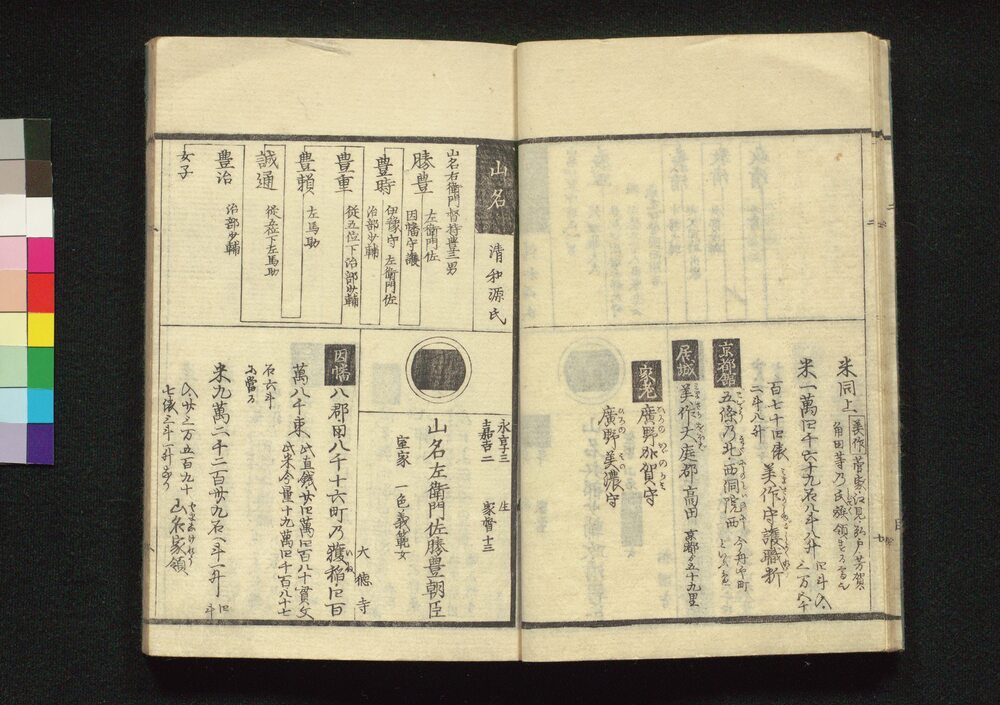 米同上
美作 菅家 江見 弘戸 芳賀
角田等乃民族
米一萬旧千六十九石八斗八升
百七十旧俵
二斗八升
美作守護職料
京都館
五條乃北西洞院西
居城
美作大庭郡高田
京都ゟ五十九里
家老
廣野加賀守
廣野美濃守
山名
清和源氏
山名右衛門督持豊三男
勝豊
左衛門佐
因幡守護
豊時
伊豫守 左衛門佐
治部少輔
豊重
従五位下治部少輔
豊頼
左馬助
誠通
從五位下左馬助
豊治
治部少輔
女子
永享三 生
嘉吉二 家督十三
山名左衛門佐勝豊朝臣
室家 一色義範女
大徳寺
因幡
八郡田八千十六町乃獲稲旧百
萬八千束
此直銭廿旧萬旧百八十貫文
此米今量十九萬旧千百八十七
石六斗
米九萬二千二百廿九石一斗一升
七俵三斗一升
山名家領